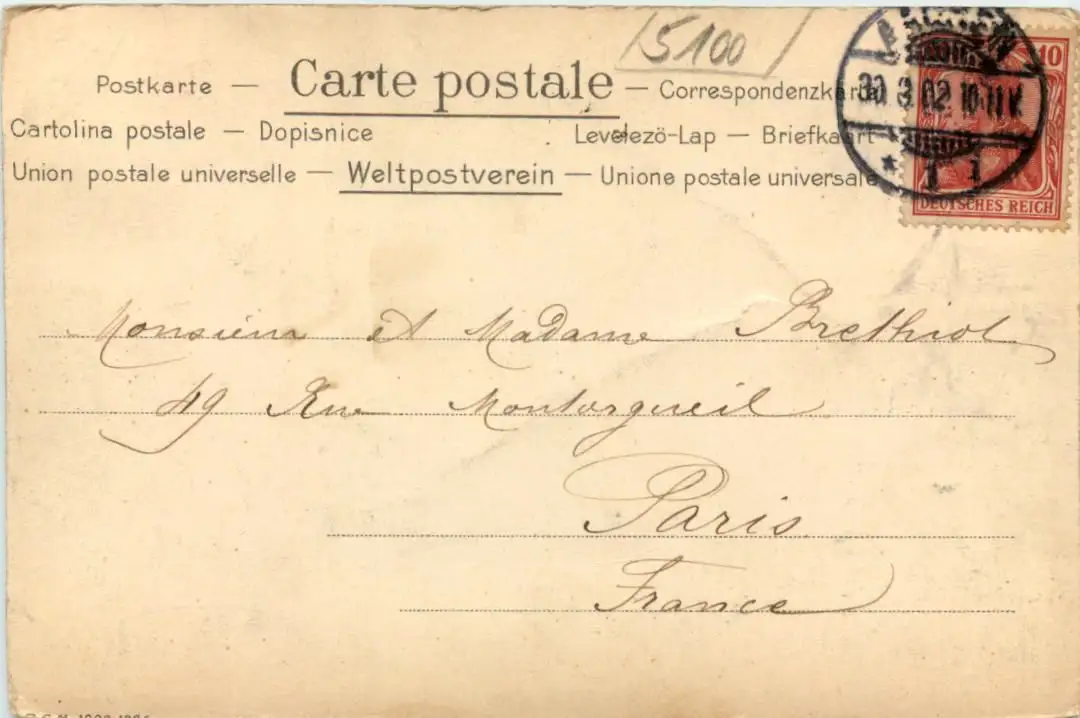 5100
Postkarte — Carte postale — Correspondenzkarte
Cartolina postale — Dopisnice Levelezö-Lap — Briefkaart
Union postale universelle — Weltpostverein — Unione postale universale
10
30 3 02 10-11 V.
* 1 1
DEUTSCHES REICH
Monsieur et Madame Brethiot
49 Rue Montorgueil
Paris
France